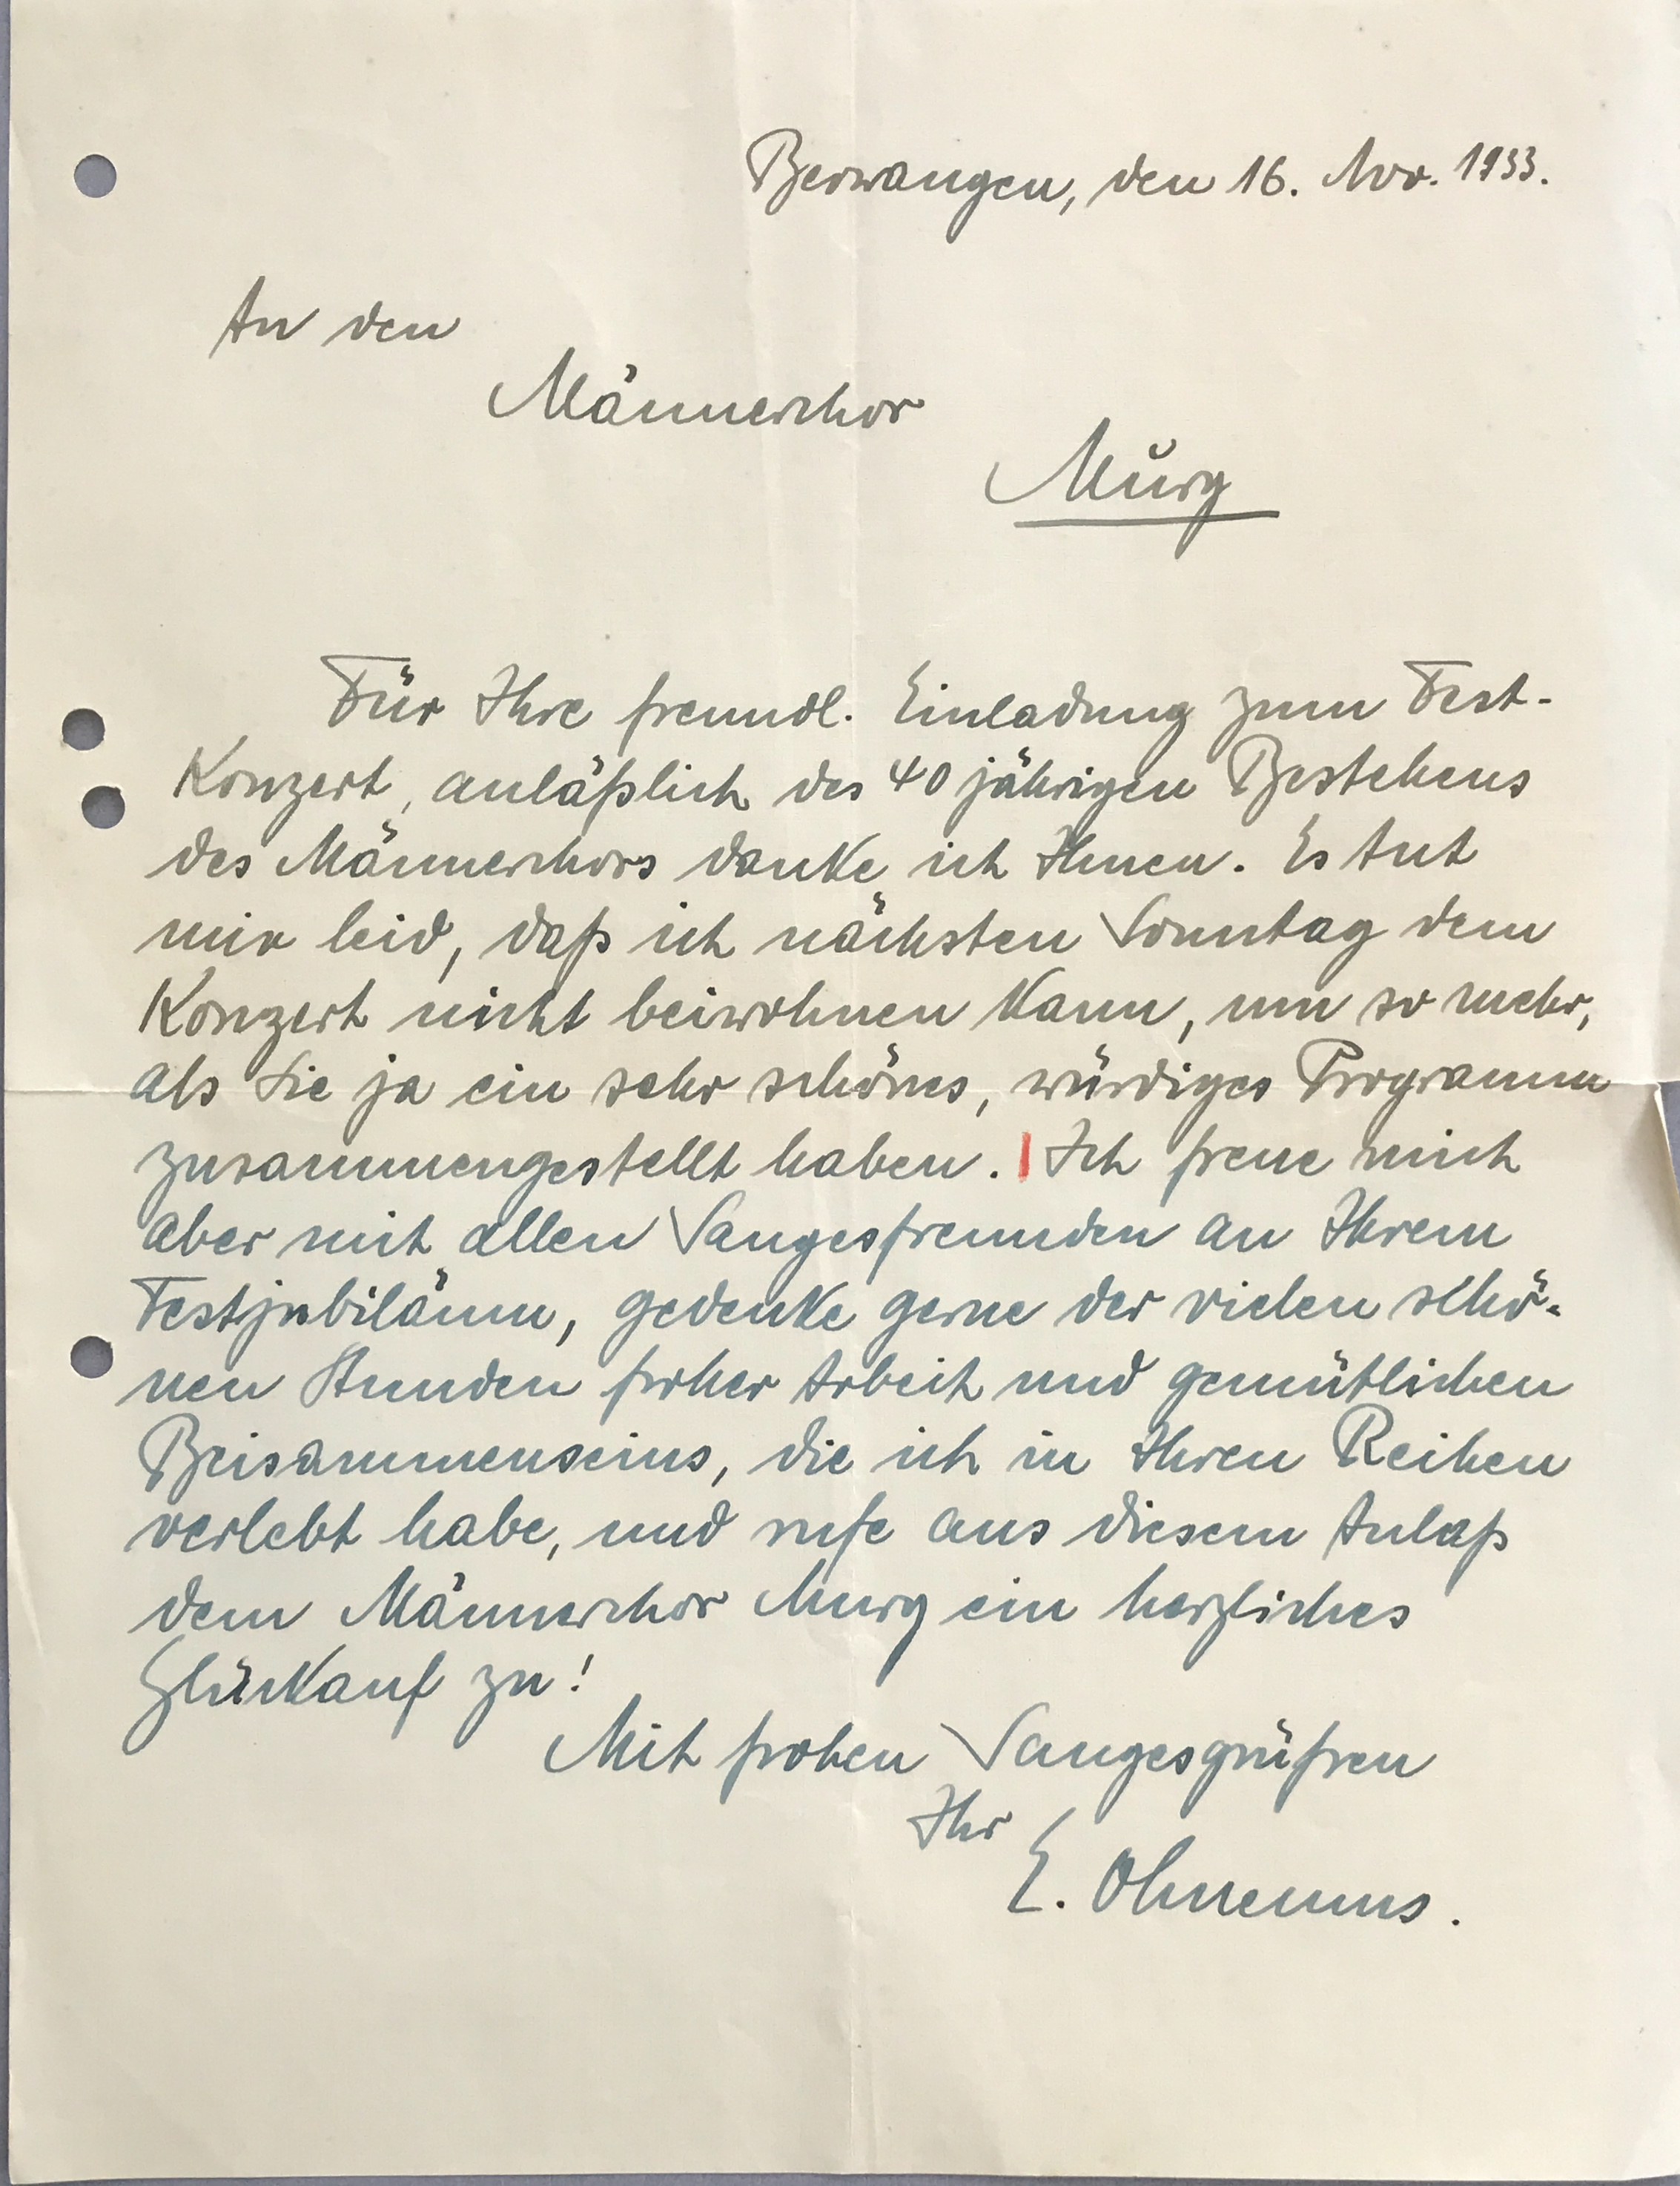 Berwangen, den 16. Nov. 1933.
An den
Männerchor
Murg
Für Ihre freundl. Einladung zum Fest-
Konzert, anläßlich des 40 jährigen Bestehens
des Männerchors danke ich Ihnen. Es tut
mir leid, daß ich nächsten Sonntag dem
Konzert nicht beiwohnen kann, um so mehr,
als Sie ja ein sehr schönes, würdiges Programm
zusammengestellt haben. Ich freue mich
aber mit allen Sangesfreunden an Ihrem
Festjubiläum, gedenke gerne der vielen schö-
nen Stunden froher Arbeit und gemütlichen
Beisammenseins, die ich in Ihren Reihen
verlebt habe, und rufe aus diesem Anlaß
dem Männerchor Murg ein herzliches
Glückauf zu!
Mit frohen Sangesgrüßen
Ihr
E. Ohnemus.